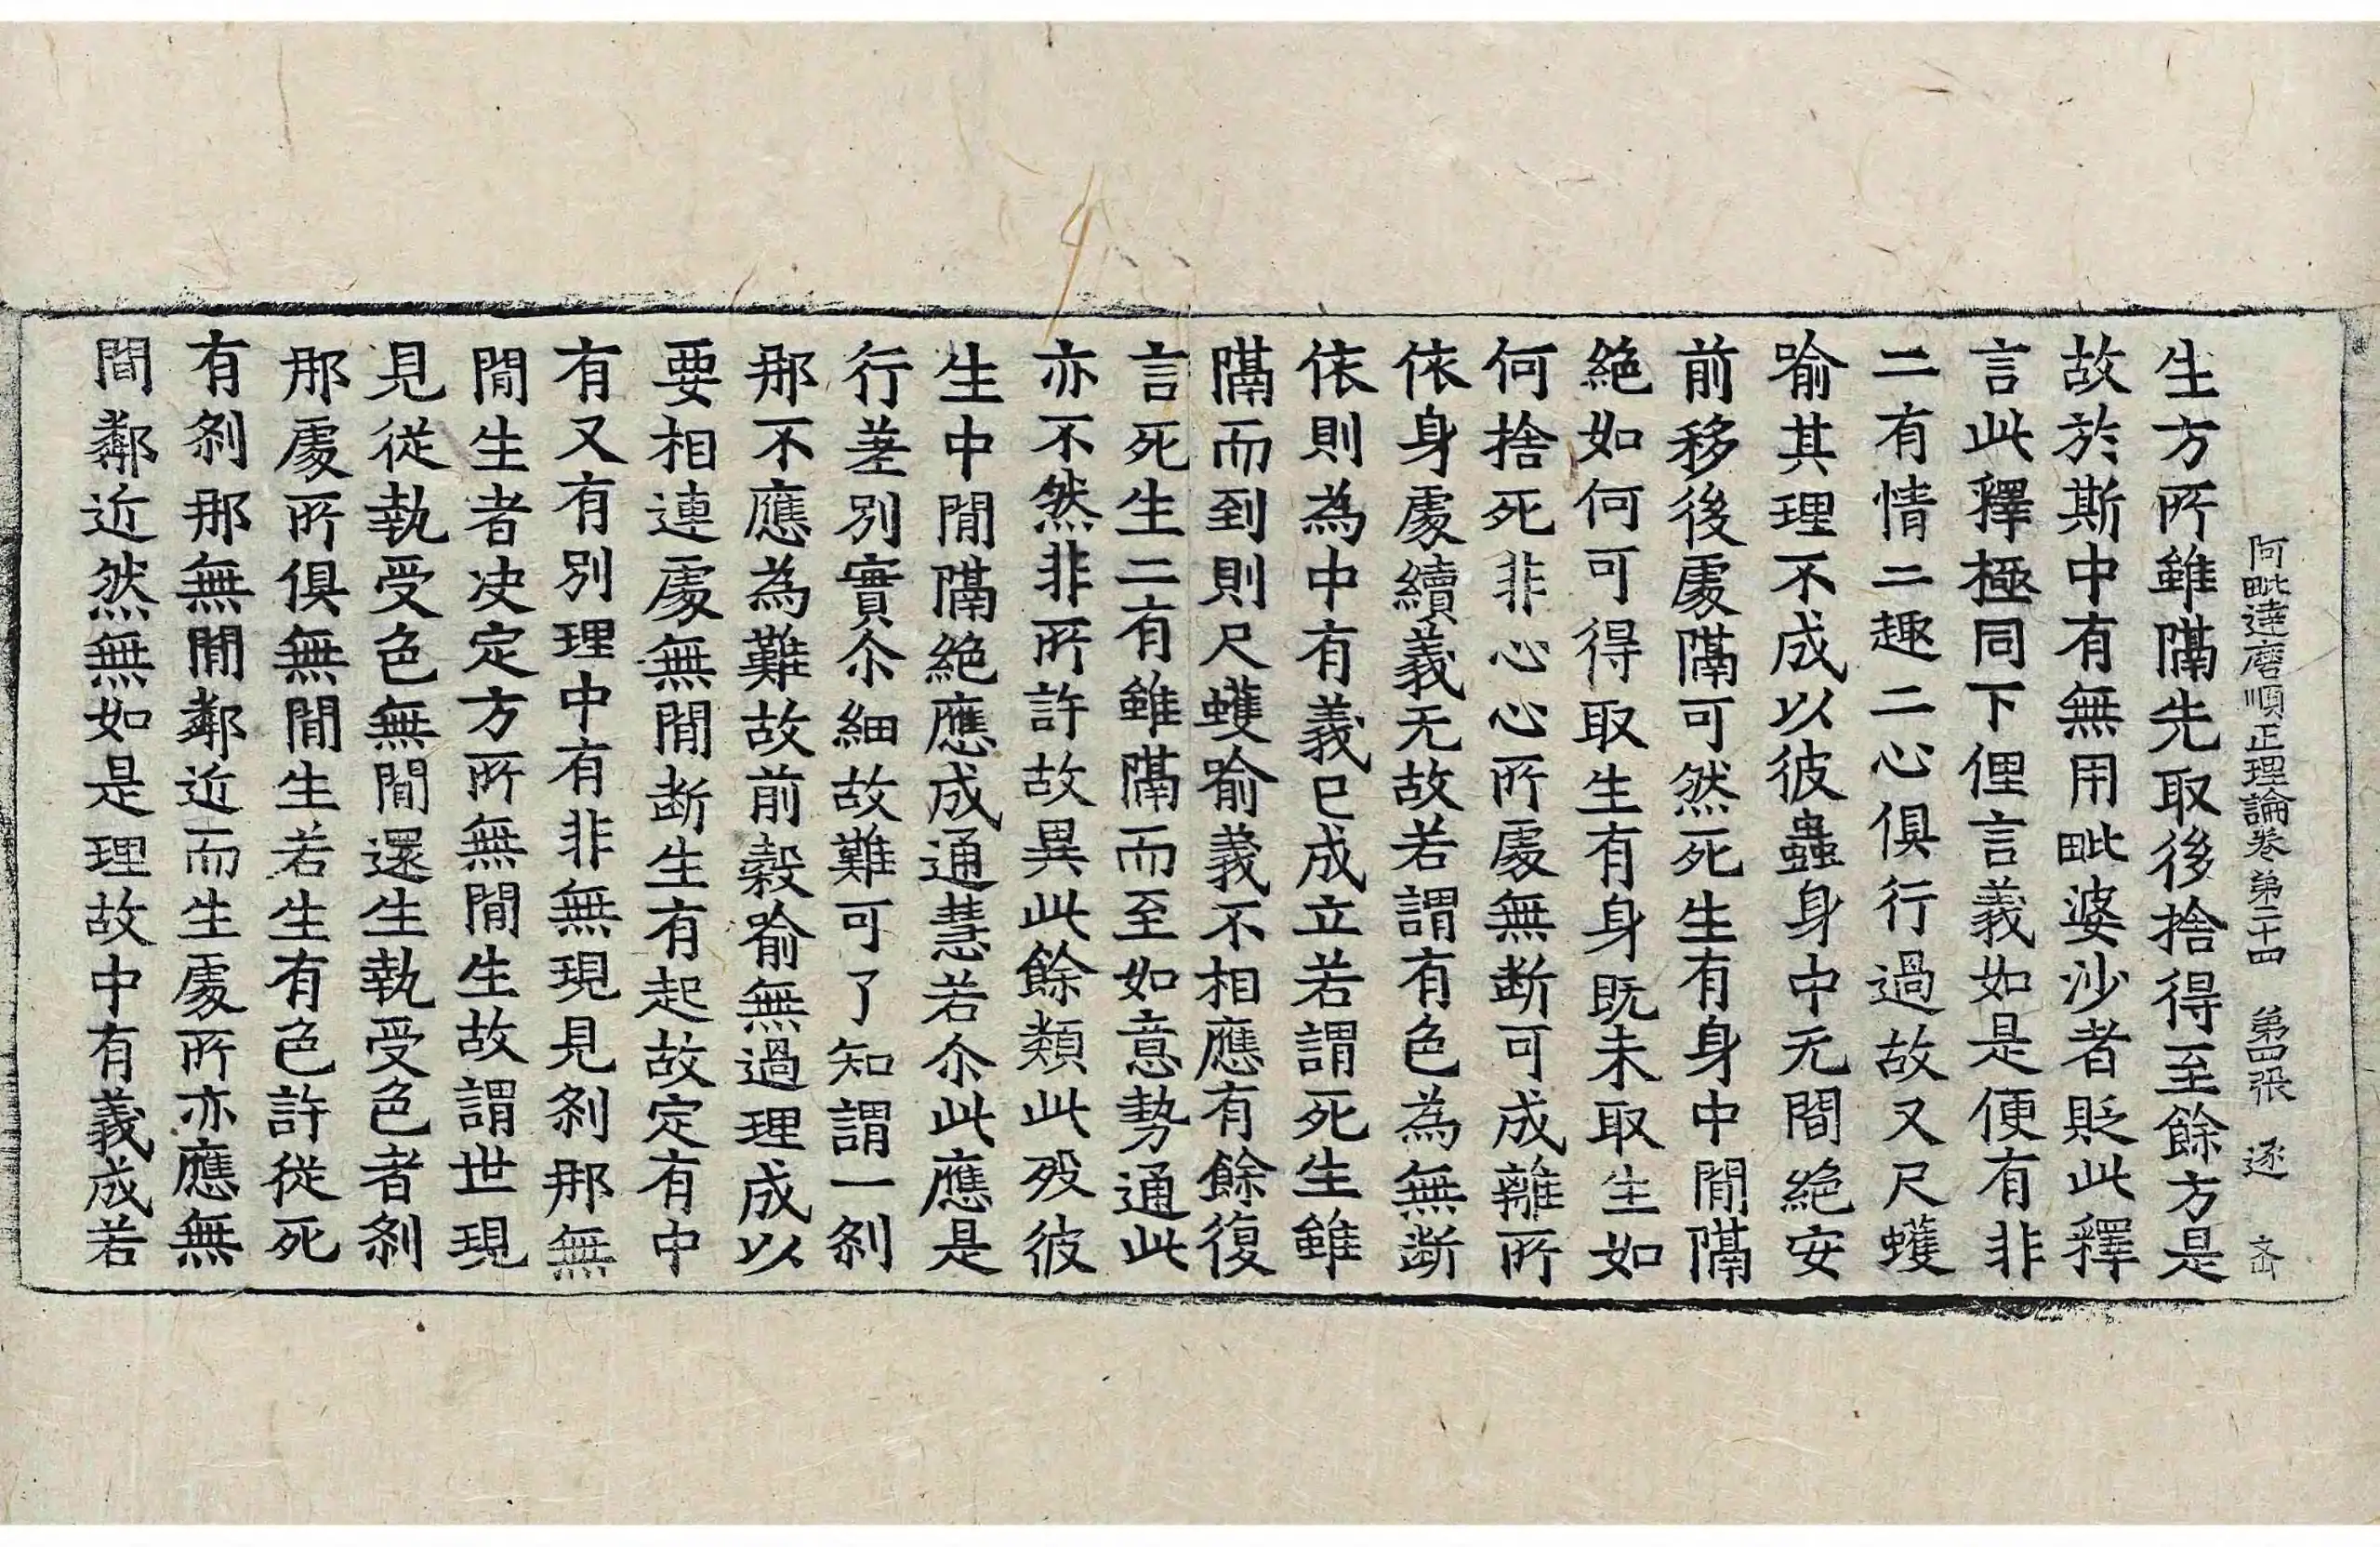 阿毗達磨順正理論卷第二十四 第四張 逐
生方所雖隔先取後捨得至餘方是
故於斯中有無用毗婆沙者貶此釋
言此釋極同下俚言義如是便有非
二有情二趣二心俱行過故又尺蠖
喻其理不成以彼蟲身中无間絕安
前移後處隔可然死生有身中間隔
絕如何可得取生有身既未取生如
何捨死非心心所處無断可成離所
依身處續義无故若謂有色為無断
依則為中有義已成立若謂死生雖
隔而到則尺蠖喻義不相應有餘復
言死生二有雖隔而至如意勢通此
亦不然非所許故異此餘類此歿彼
生中間隔絕應成通慧若尒此應是
行差別實尒細故難可了知謂一剎
那不應為難故前穀喻無過理成以
要相連處無間断生有起故定有中
有又有別理中有非無現見剎那無
間生者决定方所無間生故謂世現
見從執受色無間還生執受色者剎
那處所俱無間生若生有色許從死
有剎那無間鄰近而生處所亦應無
間鄰近然無如是理故中有義成若